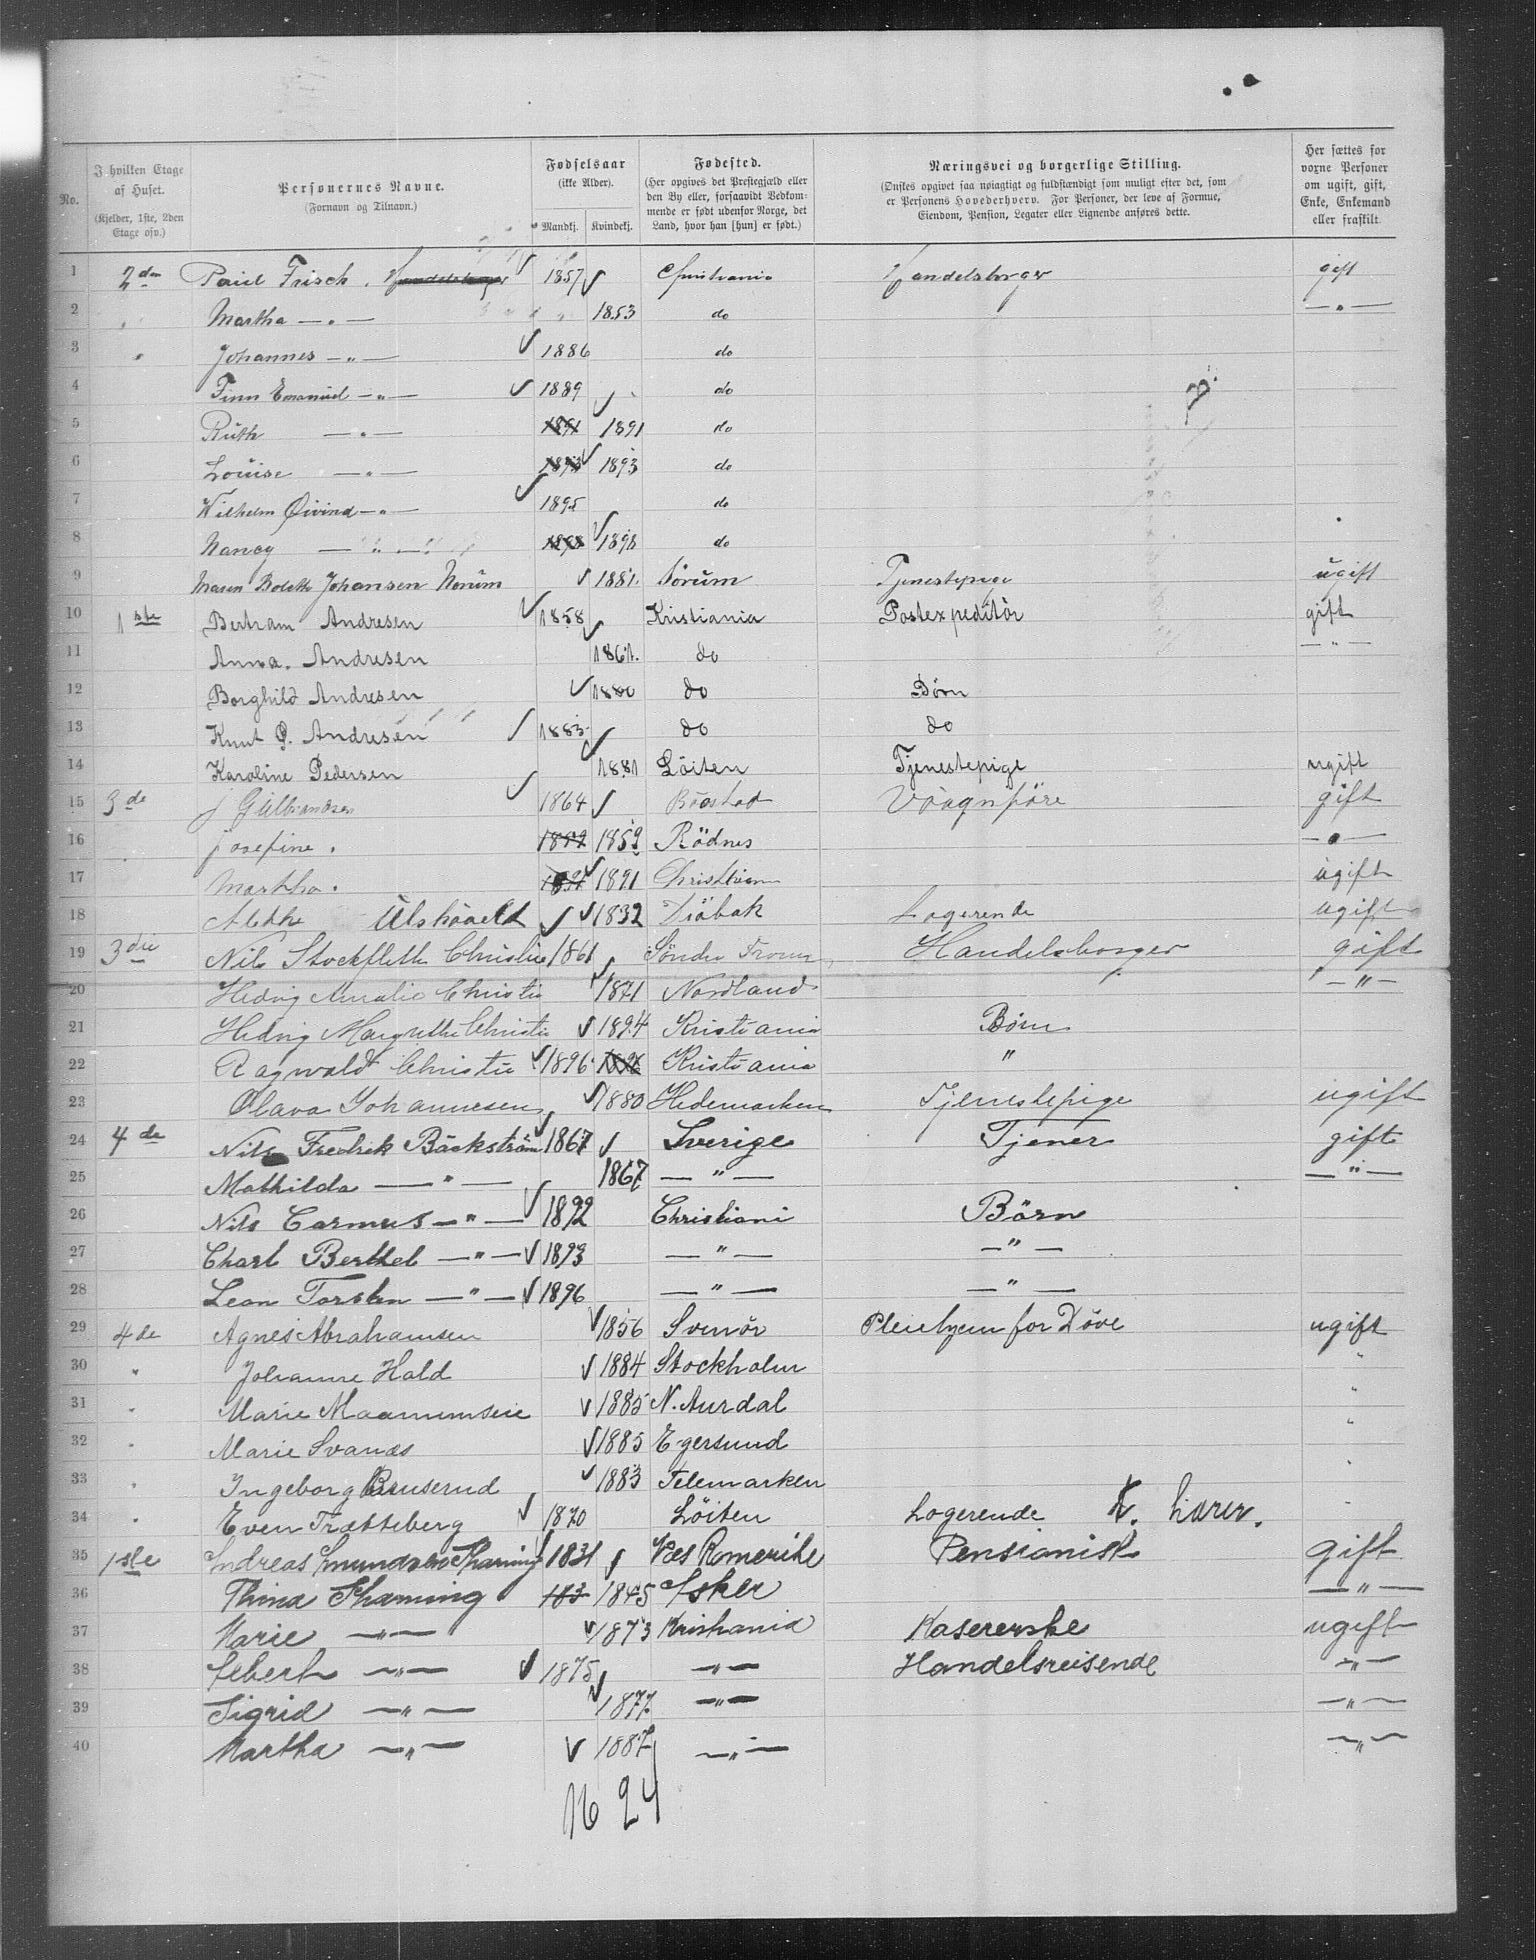 No.
I hvilken Etage af Huset. (Kjelder, 1ste, 2den Etage osv.)
Personernes Navne. (Fornavn og Tilnavn.)
Fødselsaar (ikke Alder). Mandkj. Kvindekj.
Fødested. (Her opgives det Prestegjæld eller den By eller, forsaavidt Vedkommende er født udenfor Norge, det Land, hvor han [hun] er født.)
Næringsvei og borgerlige Stilling. (Ønskes opgivet saa nøiagtigt og fuldstændigt som muligt efter det, som er Personens Hovederhverv. For Personer, der leve af Formue, Eiendom, Pension, Legater eller Lignende anføres dette.
Her sættes for vorne Personer om ugift, gift, Enke, Enkemand eller fraskilt.
1 2den Paul Frisch, Handelsborger 1857 Christiania Handelsborger gift
2 " Martha —"— 1853 do —"—
3 " Johannes —"— 1886 do
4 Finn Emanuel —"— 1889 do
5 Ruth —"— 1891 1891 do
6 Louise —"— 1893 1893 do
7 Wilhelm Øivind —"— 1895 do
8 Nancy —"— 1898 1898 do
9 Maren Bolette Johansen Norum 1881 Sørum Tjenestepige ugift
10 1ste Bertram Andresen 1858 Kristiania Postexpeditör gift
11 Anna Andresen 1861. do —"—
12 Borghild Andresen 1880 do Børn
13 Knut P. Andresen 1883 do do
14 Karoline Pedersen 1881 Löiten Tjenestepige ugift
15 3de J Gulbrandsen 1864 Vaagnföre gift
16 Josefine. 1852 1852 Rödnes —"—
17 Martha. 1891 1891 Christiania ugift
18 Alethe 1832 Dröbak Logerende ugift
19 3die Nils Stockfleth Christie 1861 Söndre Handelsborger gift
20 Hedvig Amalie Christie 1871 Nordland —"—
21 Hedvig Margrethe Christie 1894 Kristiania Børn
22 Ragwald Christie 1896 1896 Kristiania "
23 Olava Johannesen 1880 Hedemarken Tjenestepige ugift
24 4de Nils Fredrik Bäckström 1867 Sverige Tjener gift
25 Mathilda —"— 1867 —"— —"—
26 Nils Carmus —"— 1892 Christiani Börn
27 Charl Berthel —"— 1893 —"— —"—
28 Leon Torsten —"— 1896 —"— —"—
29 4de Agnes Abrahamsen 1856 Svenör Pleiehjem for Døve ugift
30 " Johanne Hald 1884 Stockholm "
31 " Marie 1885 N. Aurdal "
32 " Marie Svanæs 1885 Egersund "
33 " Ingeborg Buuserud 1883 Telemarken "
34 " Even Trætteberg 1870 Löiten Logerende "
35 1ste Andreas Amundsen Tharning 1831 Næs Romerike Pensionist gift
36 Thina Tharning 183 1845 Asker —"—
37 Marie —"— 1873 Kristiania Kasererske ugift
38 —"— 1875 —"— Handelsreisende —"—
39 Sigrid —"— 1877 —"— —"—
40 Martha —"— 1887 —"— —"—
16 24